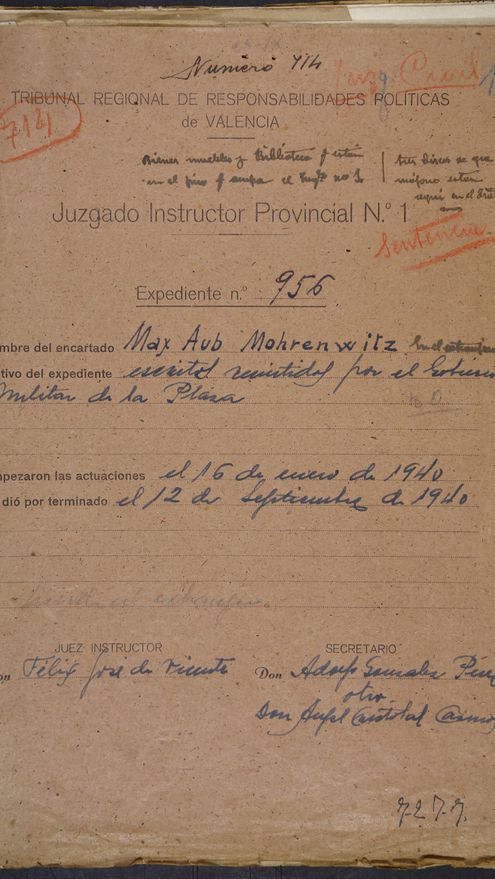 Numero 714
Juzg. Civil
TRIBUNAL REGIONAL DE RESPONSABILIDADES POLÍTICAS
714
de VALENCIA
Bienes muebles y Biblioteca q están
en el piso q ocupa el
tres discos
Juzgado Instructor Provincial N.º 1
Sentencia
Expediente n.º 956
mbre del encartado Max Aub Mohrenwitz En el extranjero
tivo del expediente escritos remitidos por el Gobierno
Militar de la Plaza
mpezaron las actuaciones el 16 de enero de 1940
dió por terminado el 12 de Septiembre de 1940
JUEZ INSTRUCTOR SECRETARIO
on Félix José de Vicente Don Adolfo Gonzalez Pérez
otro
Don Angel Cristobal
7.2.7.7.